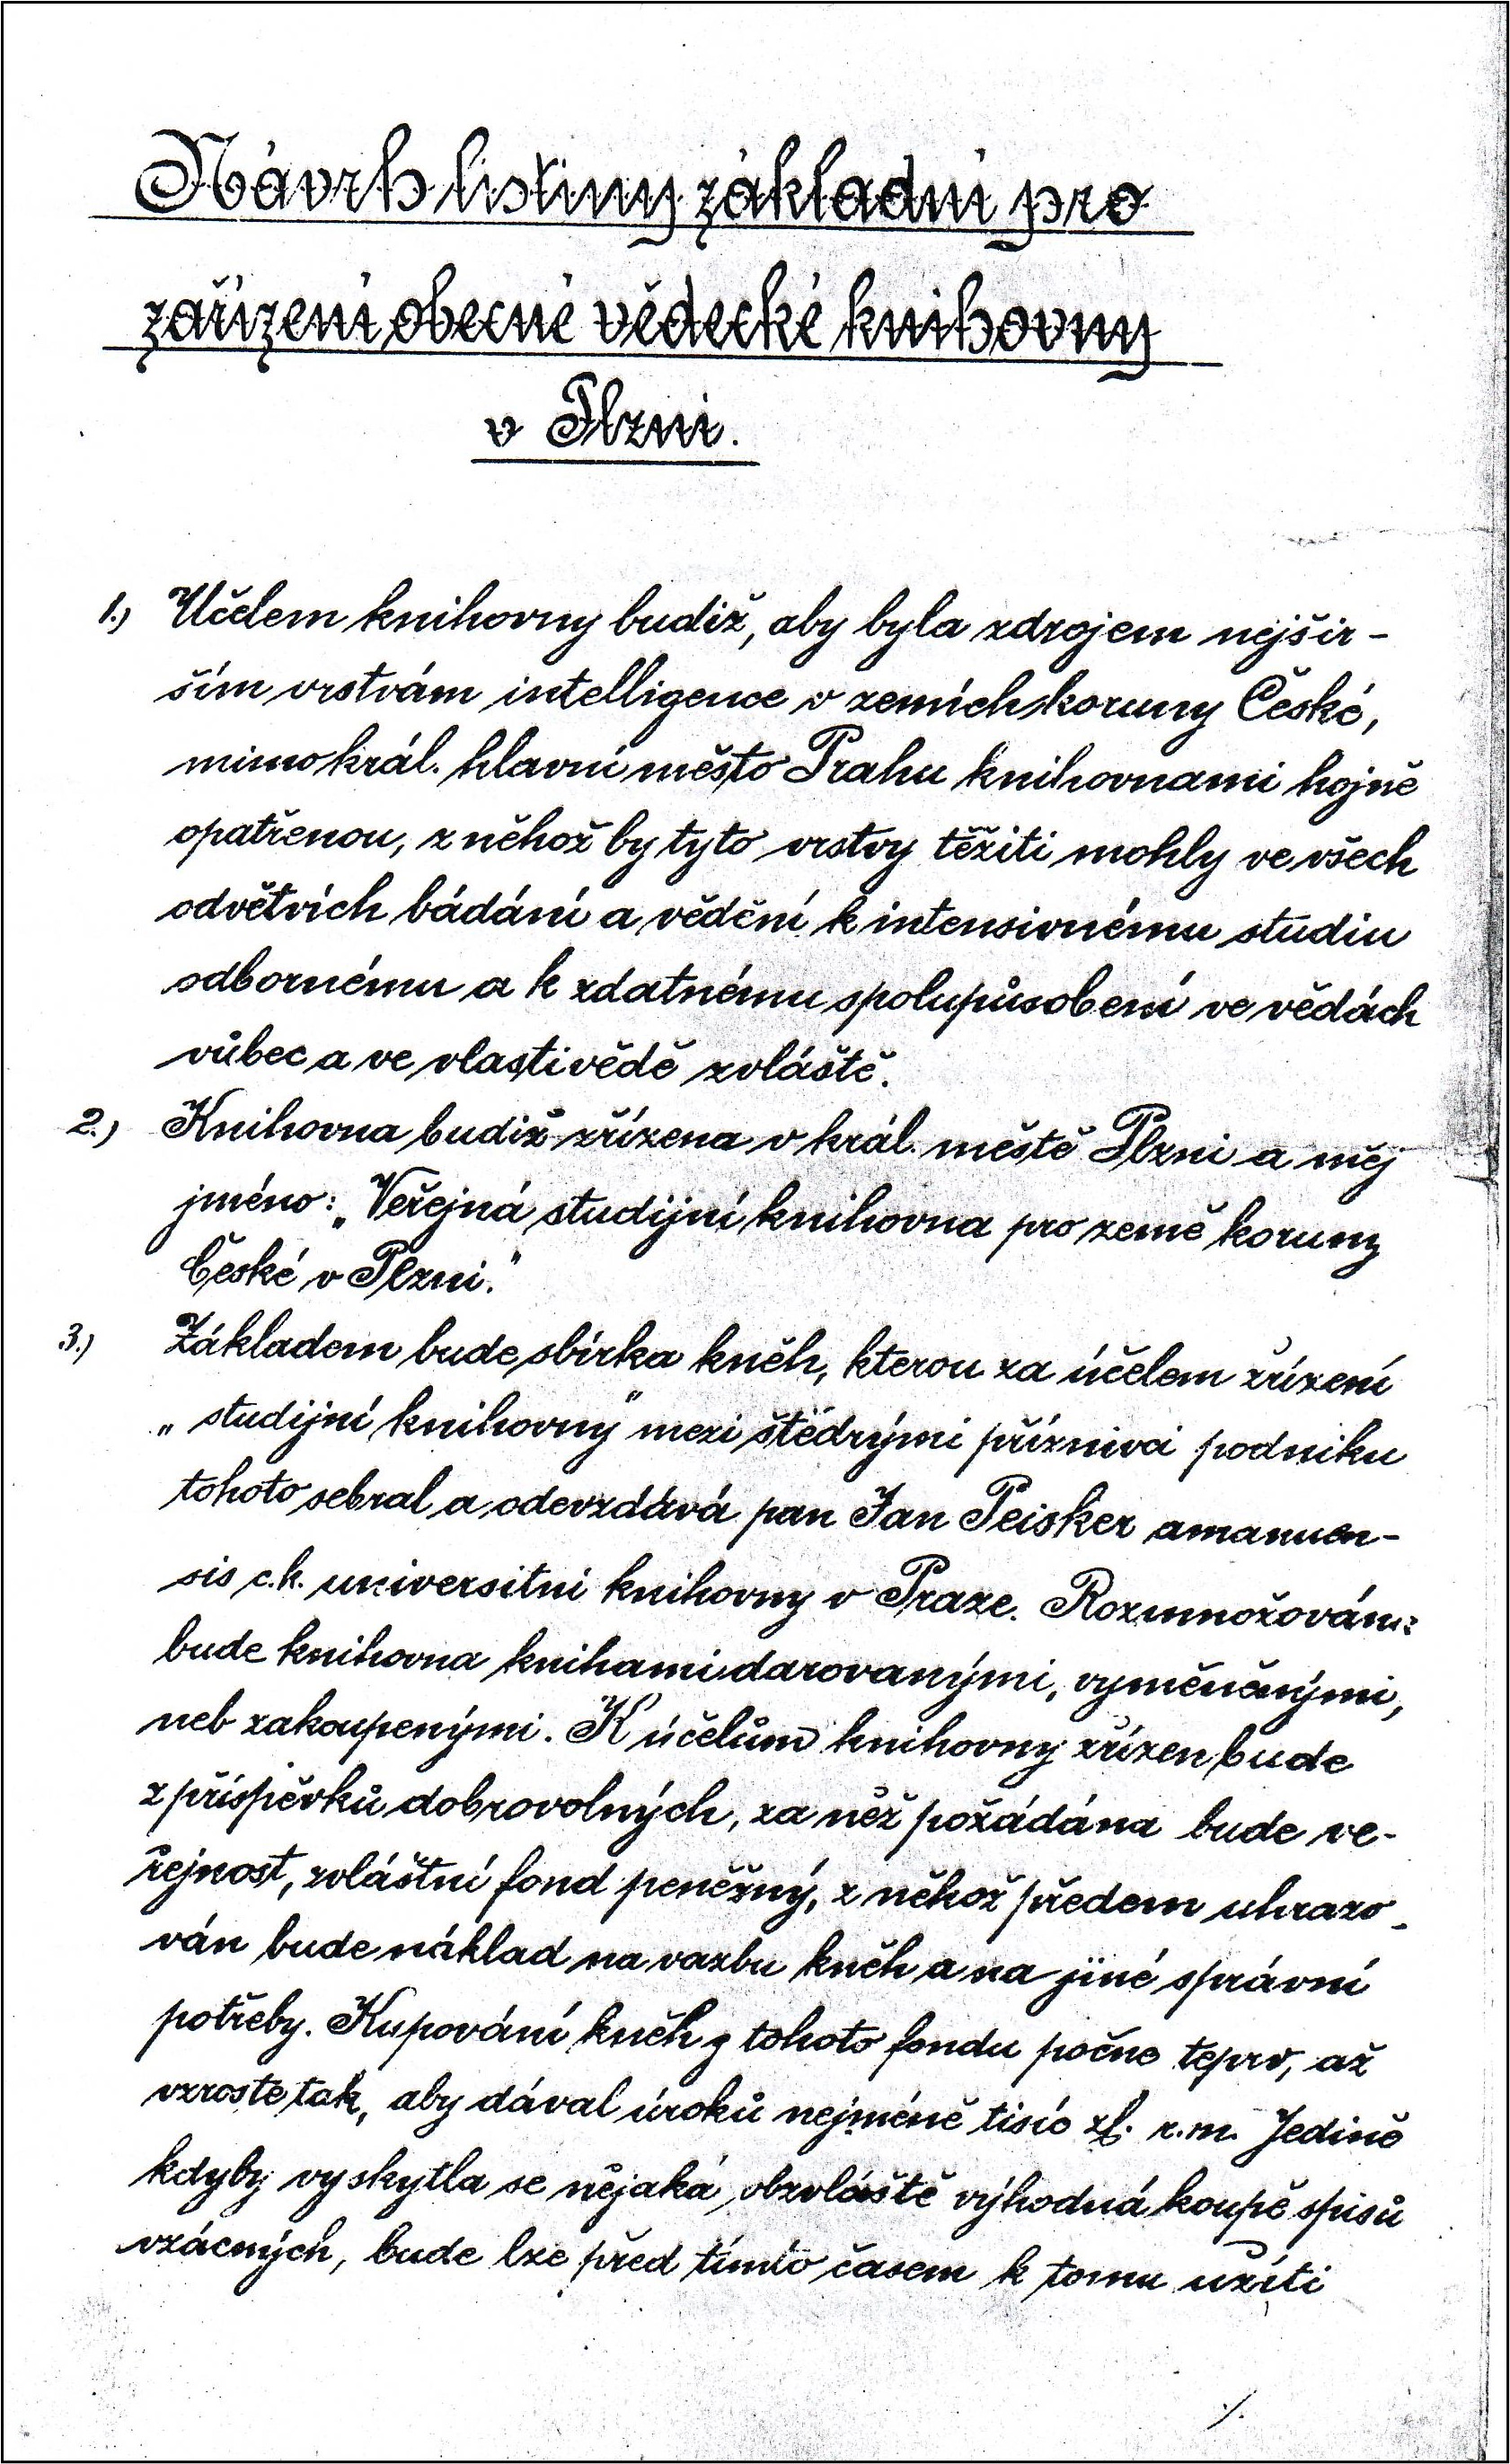 Návrh listiny základní pro
zařízení obecné vědecké knihovny
v Plzni.
1.) Účelem knihovny budiž, aby byla zdrojem nejšir-
ším vrstvám intelligence v zemích koruny České,
mimo král. hlavní město Prahu knihovnami hojně
opatřenou, z něhož by tyto vrstvy těžiti mohly ve všech
odvětvích bádání a vědění k intensivnému studiu
odbornému a k zdatnému spolupůsobení ve vědách
vůbec a ve vlastivědě zvláště.
2.) Knihovna budiž zřízena v král. městě Plzni a měj
jméno: „Veřejná studijní knihovna pro země koruny
České v Plzni."
3.) Základem bude sbírka kněh, kterou za účelem zřízení
„studijní knihovny" mezi štědrými příznivci podniku
tohoto sebral a odevzdává pan Jan Peisker amanuen-
sis c.k. universitní knihovny v Praze. Rozmnožována
bude knihovna knihami darovanými, vyměněnými,
neb zakoupenými. K účelům knihovny zřízen bude
z příspěvků dobrovolných, za něž požádána bude ve-
řejnost, zvláštní fond peněžný, z něhož předem uhrazo-
ván bude náklad na vazbu kněh a na jiné správní
potřeby. Kupování kněh z tohoto fondu počne teprv, až
vzroste tak, aby dával úroků nejméně tisíc zl. r.m. Jedině
kdyby vyskytla se nějaká obzvláště výhodná koupě spisů
vzácných, bude lze před tímto časem k tomu užíti
./.